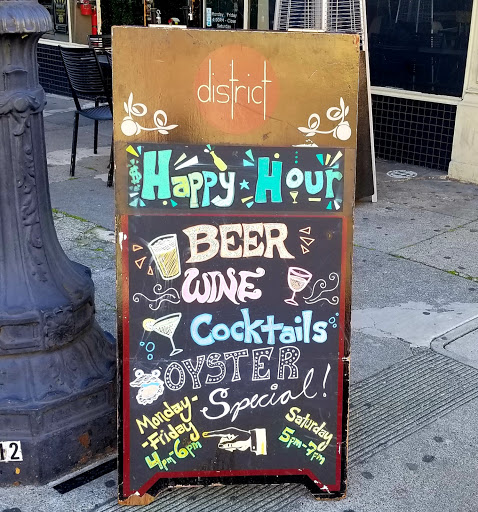 Monday - Friday
district
Happy Hour
BEER
WINE
Cocktails
OYSTER
Special!
Monday-
-Friday
4pm-6pm
Saturday
5pm-7pm
12